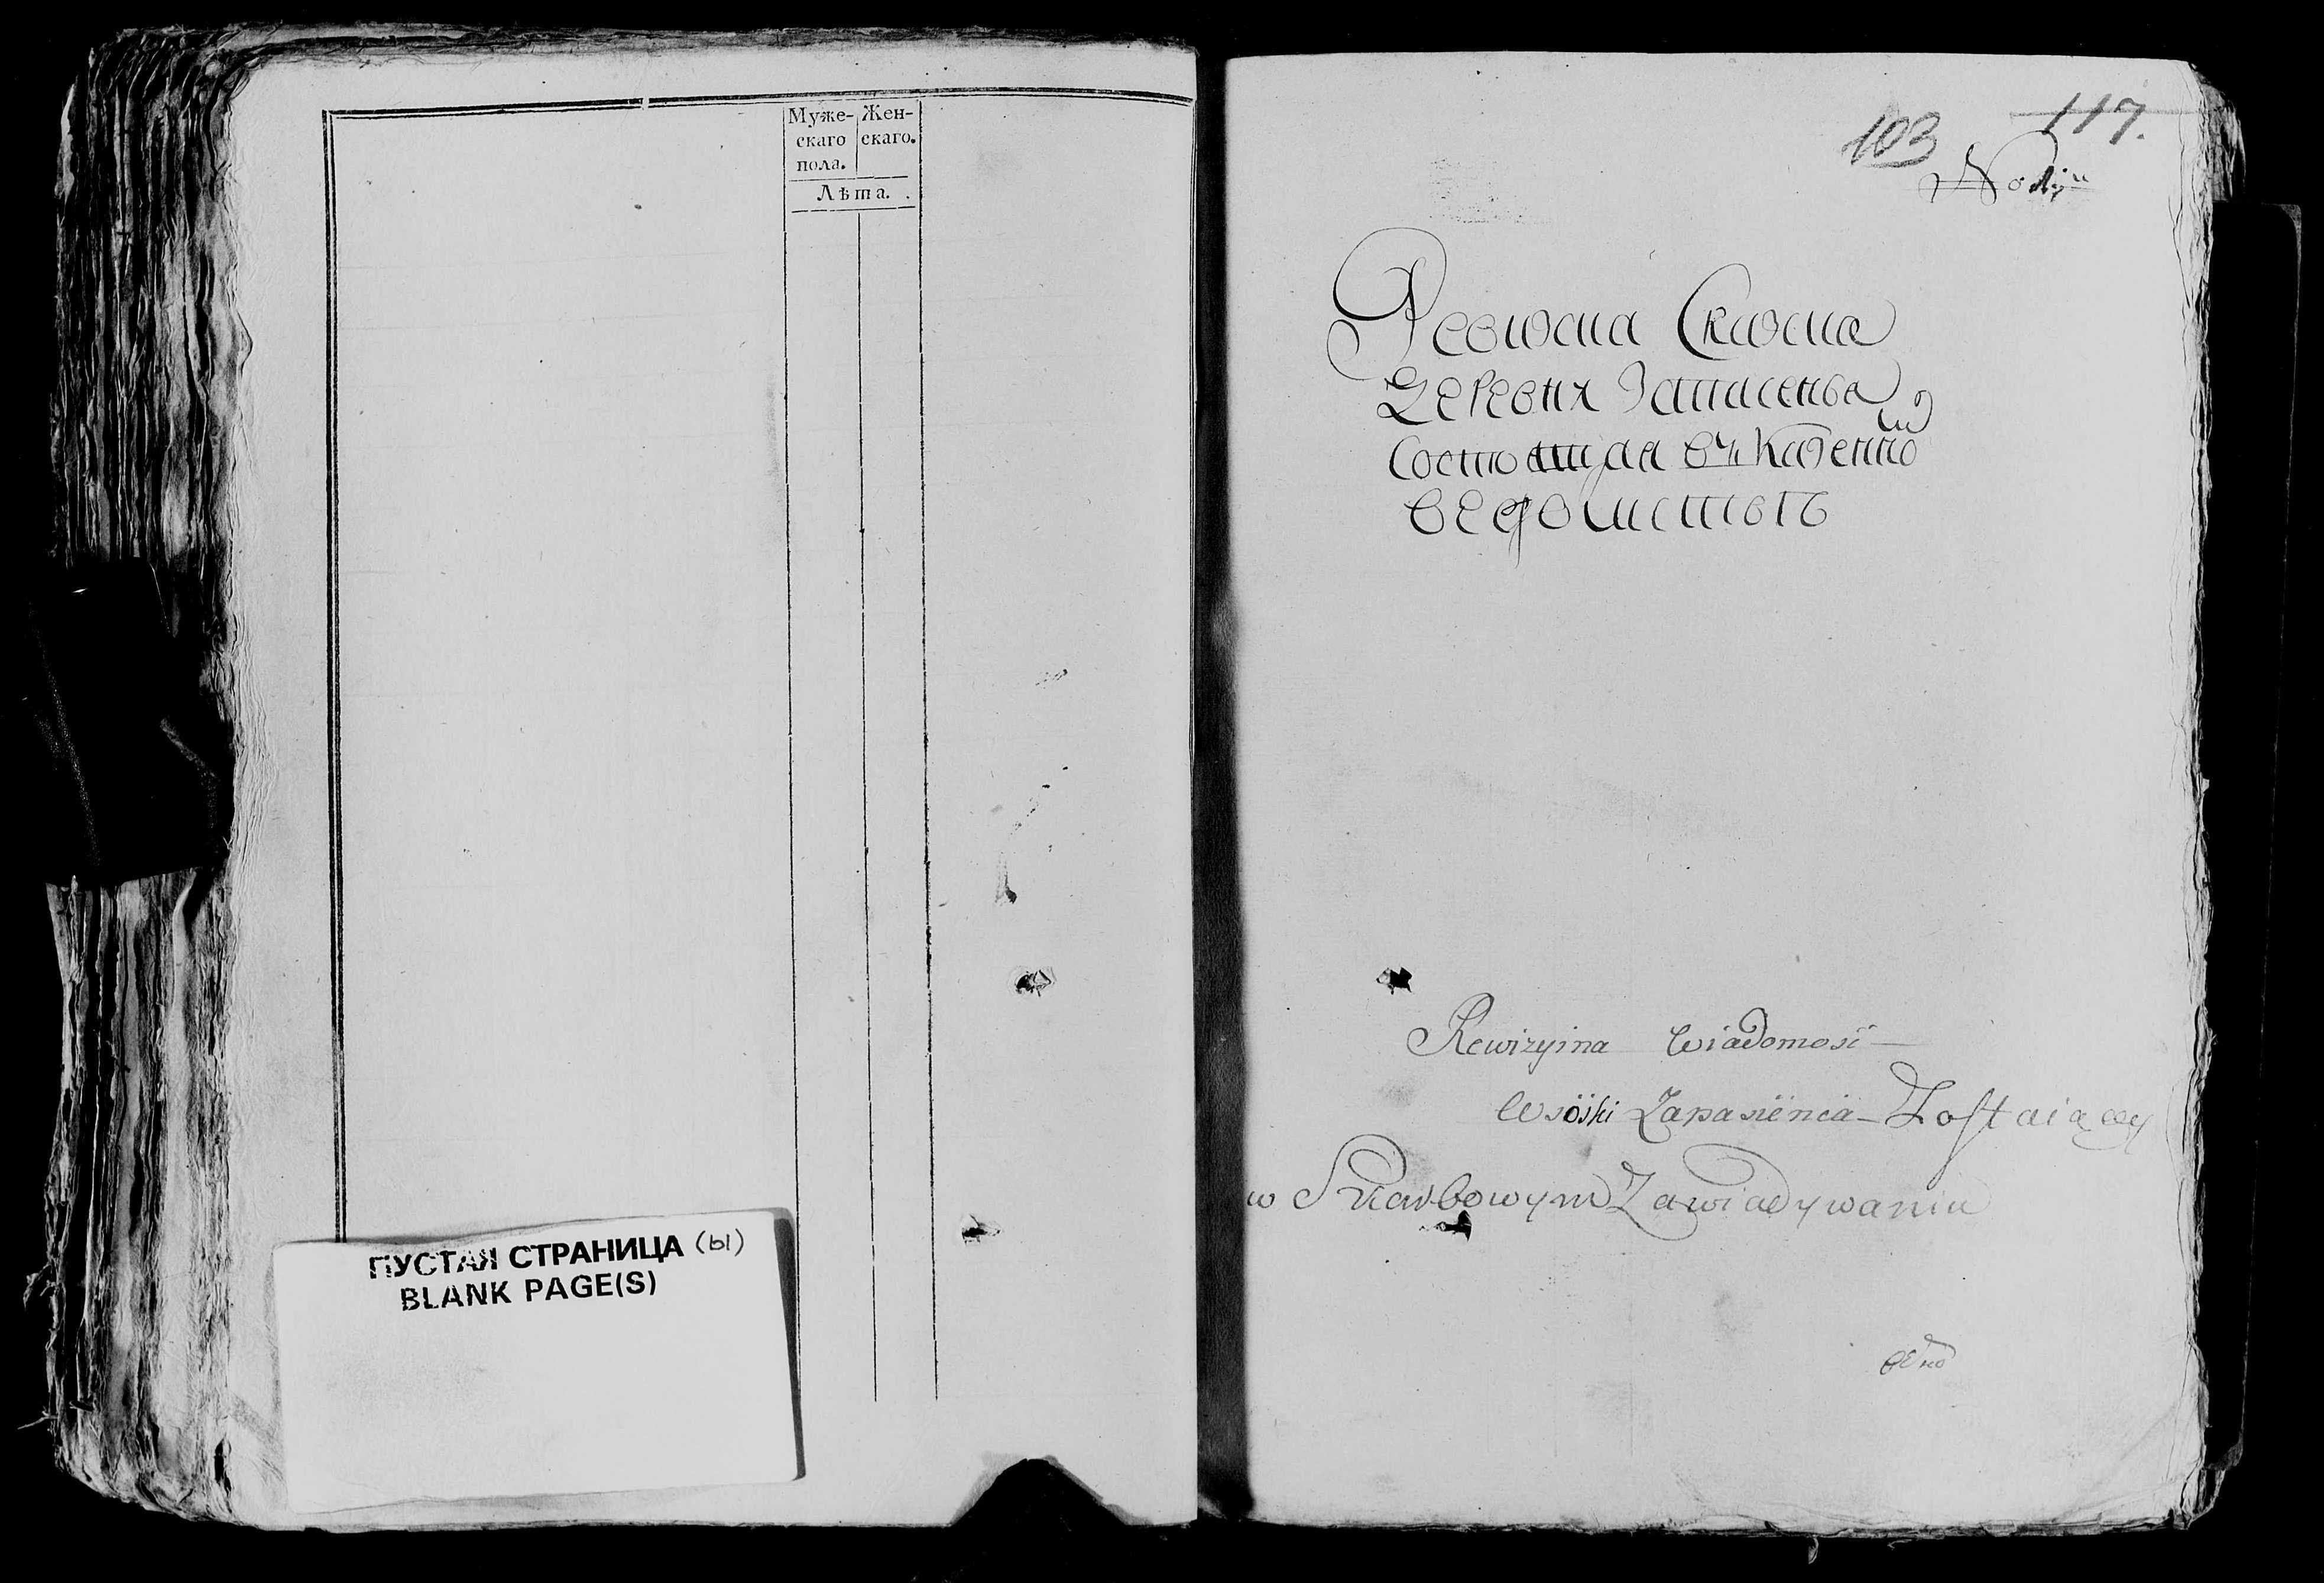 Муже- Жен-
скаго скаго.
пола.
Лѣта.
ПУСТАЯ СТРАНИЦА (ы)
BLANK PAGE(S)
103 117.
Ревизка Сказка
Деревня Запасенка
Состоящая въ Казенной
ведомстве
Rewizyina Wiadomość
Wsöski Zapasiëncia Zostaiący
w Skarbowym Zawiadywaniu